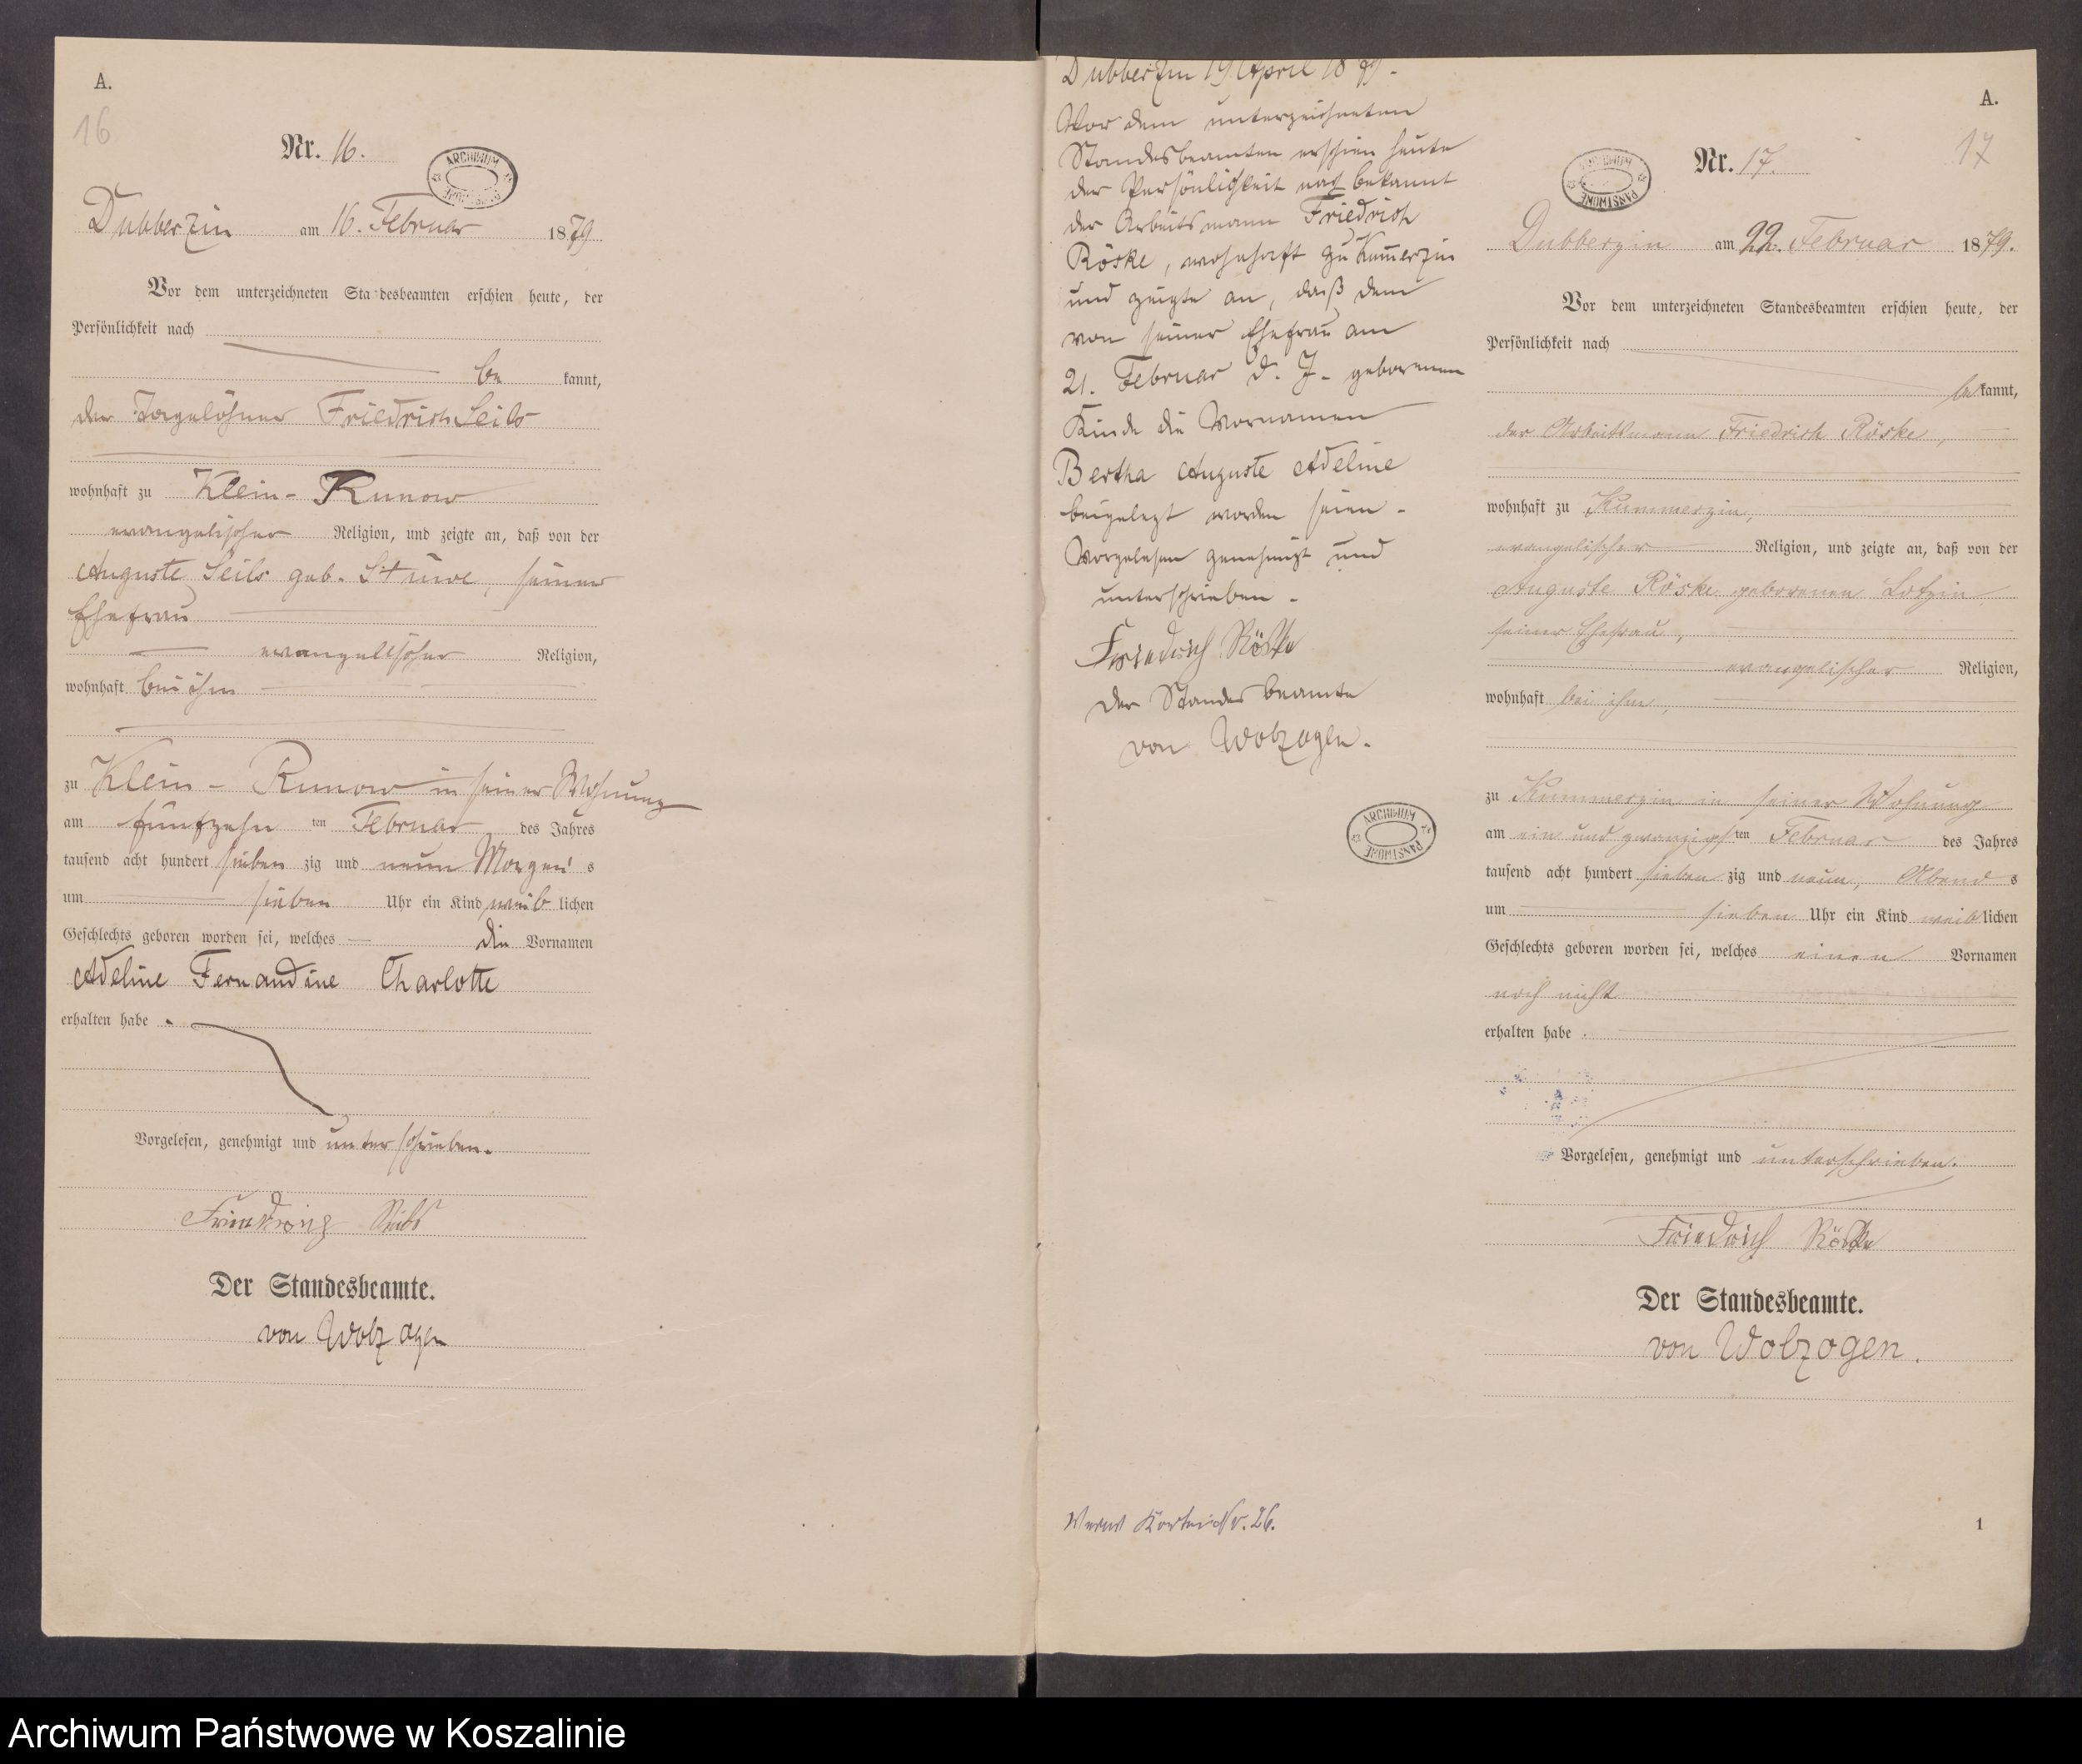 A.
16
Nr. 16.
ARCHIWUM PAŃSTWOWE
Dubberzin am 16. Februar 1879
Vor dem unterzeichneten Standesbeamten erschien heute, der
Persönlichkeit nach
be kannt,
der Tagelöhner Friedrich Seils
wohnhaft zu Klein-Runow
evangelischer Religion, und zeigte an, daß von der
Auguste Seils geb. Stüwe, seiner
Ehefrau
evangelischer Religion,
wohnhaft bei ihm
zu Klein-Runow in seiner Wohnung
am fünfzehn ten Februar des Jahres
tausend acht hundert sieben zig und neun Morgen's
um sieben Uhr ein Kind weib lichen
Geschlechts geboren worden sei, welches die Vornamen
Adeline Fernandine Charlotte
erhalten habe.
Vorgelesen, genehmigt und unterschrieben.
Friedrich Seils
Der Standesbeamte.
von Wolzogen
Dubberzin 19 April 1879.
Vor dem unterzeichneten
Standesbeamten erschien heute
der Persönlichkeit nach bekannt
der Arbeitsmann Friedrich
Röske, wohnhaft zu Kum̅erzin
und zeigte an, daß dem
von seiner Ehefrau am
21. Februar d. J. geborenen
Kinde die Vornamen
Bertha Auguste Adeline
beigelegt worden seien.
Vorgelesen genehmigt und
unterschrieben.
Friedrich Röske
Der Standesbeamte
von Wolzogen.
ARCHIWUM PAŃSTWOWE
Nr. 26.
A.
17
Nr. 17.
ARCHIWUM PAŃSTWOWE
Dubberzin am 22. Februar 1879.
Vor dem unterzeichneten Standesbeamten erschien heute, der
Persönlichkeit nach
be kannt,
der Arbeitsmann Friedrich Röske,
wohnhaft zu Kummerzin,
evangelischer Religion, und zeigte an, daß von der
Auguste Röske geborenen Lotzin
seiner Ehefrau,
evangelischer Religion,
wohnhaft bei ihm,
zu Kummerzin in seiner Wohnung
am ein und zwanzigsten Februar des Jahres
tausend acht hundert sieben zig und neun, Abend s
um sieben Uhr ein Kind weiblichen
Geschlechts geboren worden sei, welches einen Vornamen
noch nicht
erhalten habe.
Vorgelesen, genehmigt und unterschrieben.
Friedrich Röske
Der Standesbeamte.
von Wolzogen.
1
Archiwum Państwowe w Koszalinie